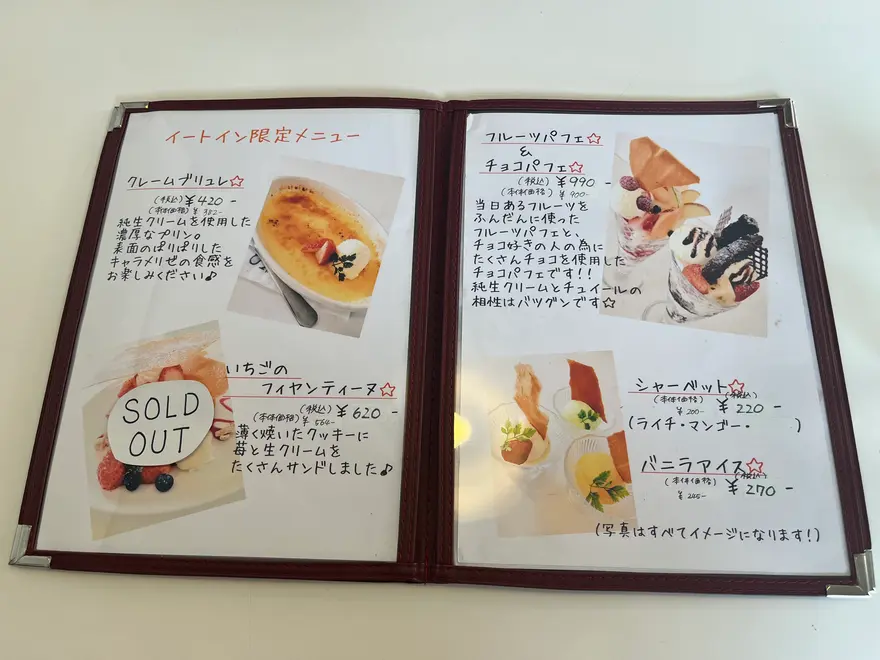 イートイン限定メニュー
クレームブリュレ☆
(税込) ¥420-
(本体価格) ¥382-
純生クリームを使用した
濃厚なプリン。
表面のぱりぱりした
キャラメリゼの食感を
お楽しみください♪
いちごの
フィヤンティーヌ☆
(税込) ¥620-
(本体価格) ¥564-
薄く焼いたクッキーに
苺と生クリームを
たくさんサンドしました♪
SOLD
OUT
フルーツパフェ☆
&
チョコパフェ☆
(税込) ¥990-
(本体価格) ¥900-
当日あるフルーツを
ふんだんに使った
フルーツパフェと、
チョコ好きの人の為に
たくさんチョコを使用した
チョコパフェです!!
純生クリームとチュイールの
相性はバツグンです☆
シャーベット☆
(本体価格) ¥200-
(税込) ¥220-
(ライチ・マンゴー・ )
バニラアイス☆
(本体価格) ¥245-
(税込) ¥270-
(写真はすべてイメージになります!)